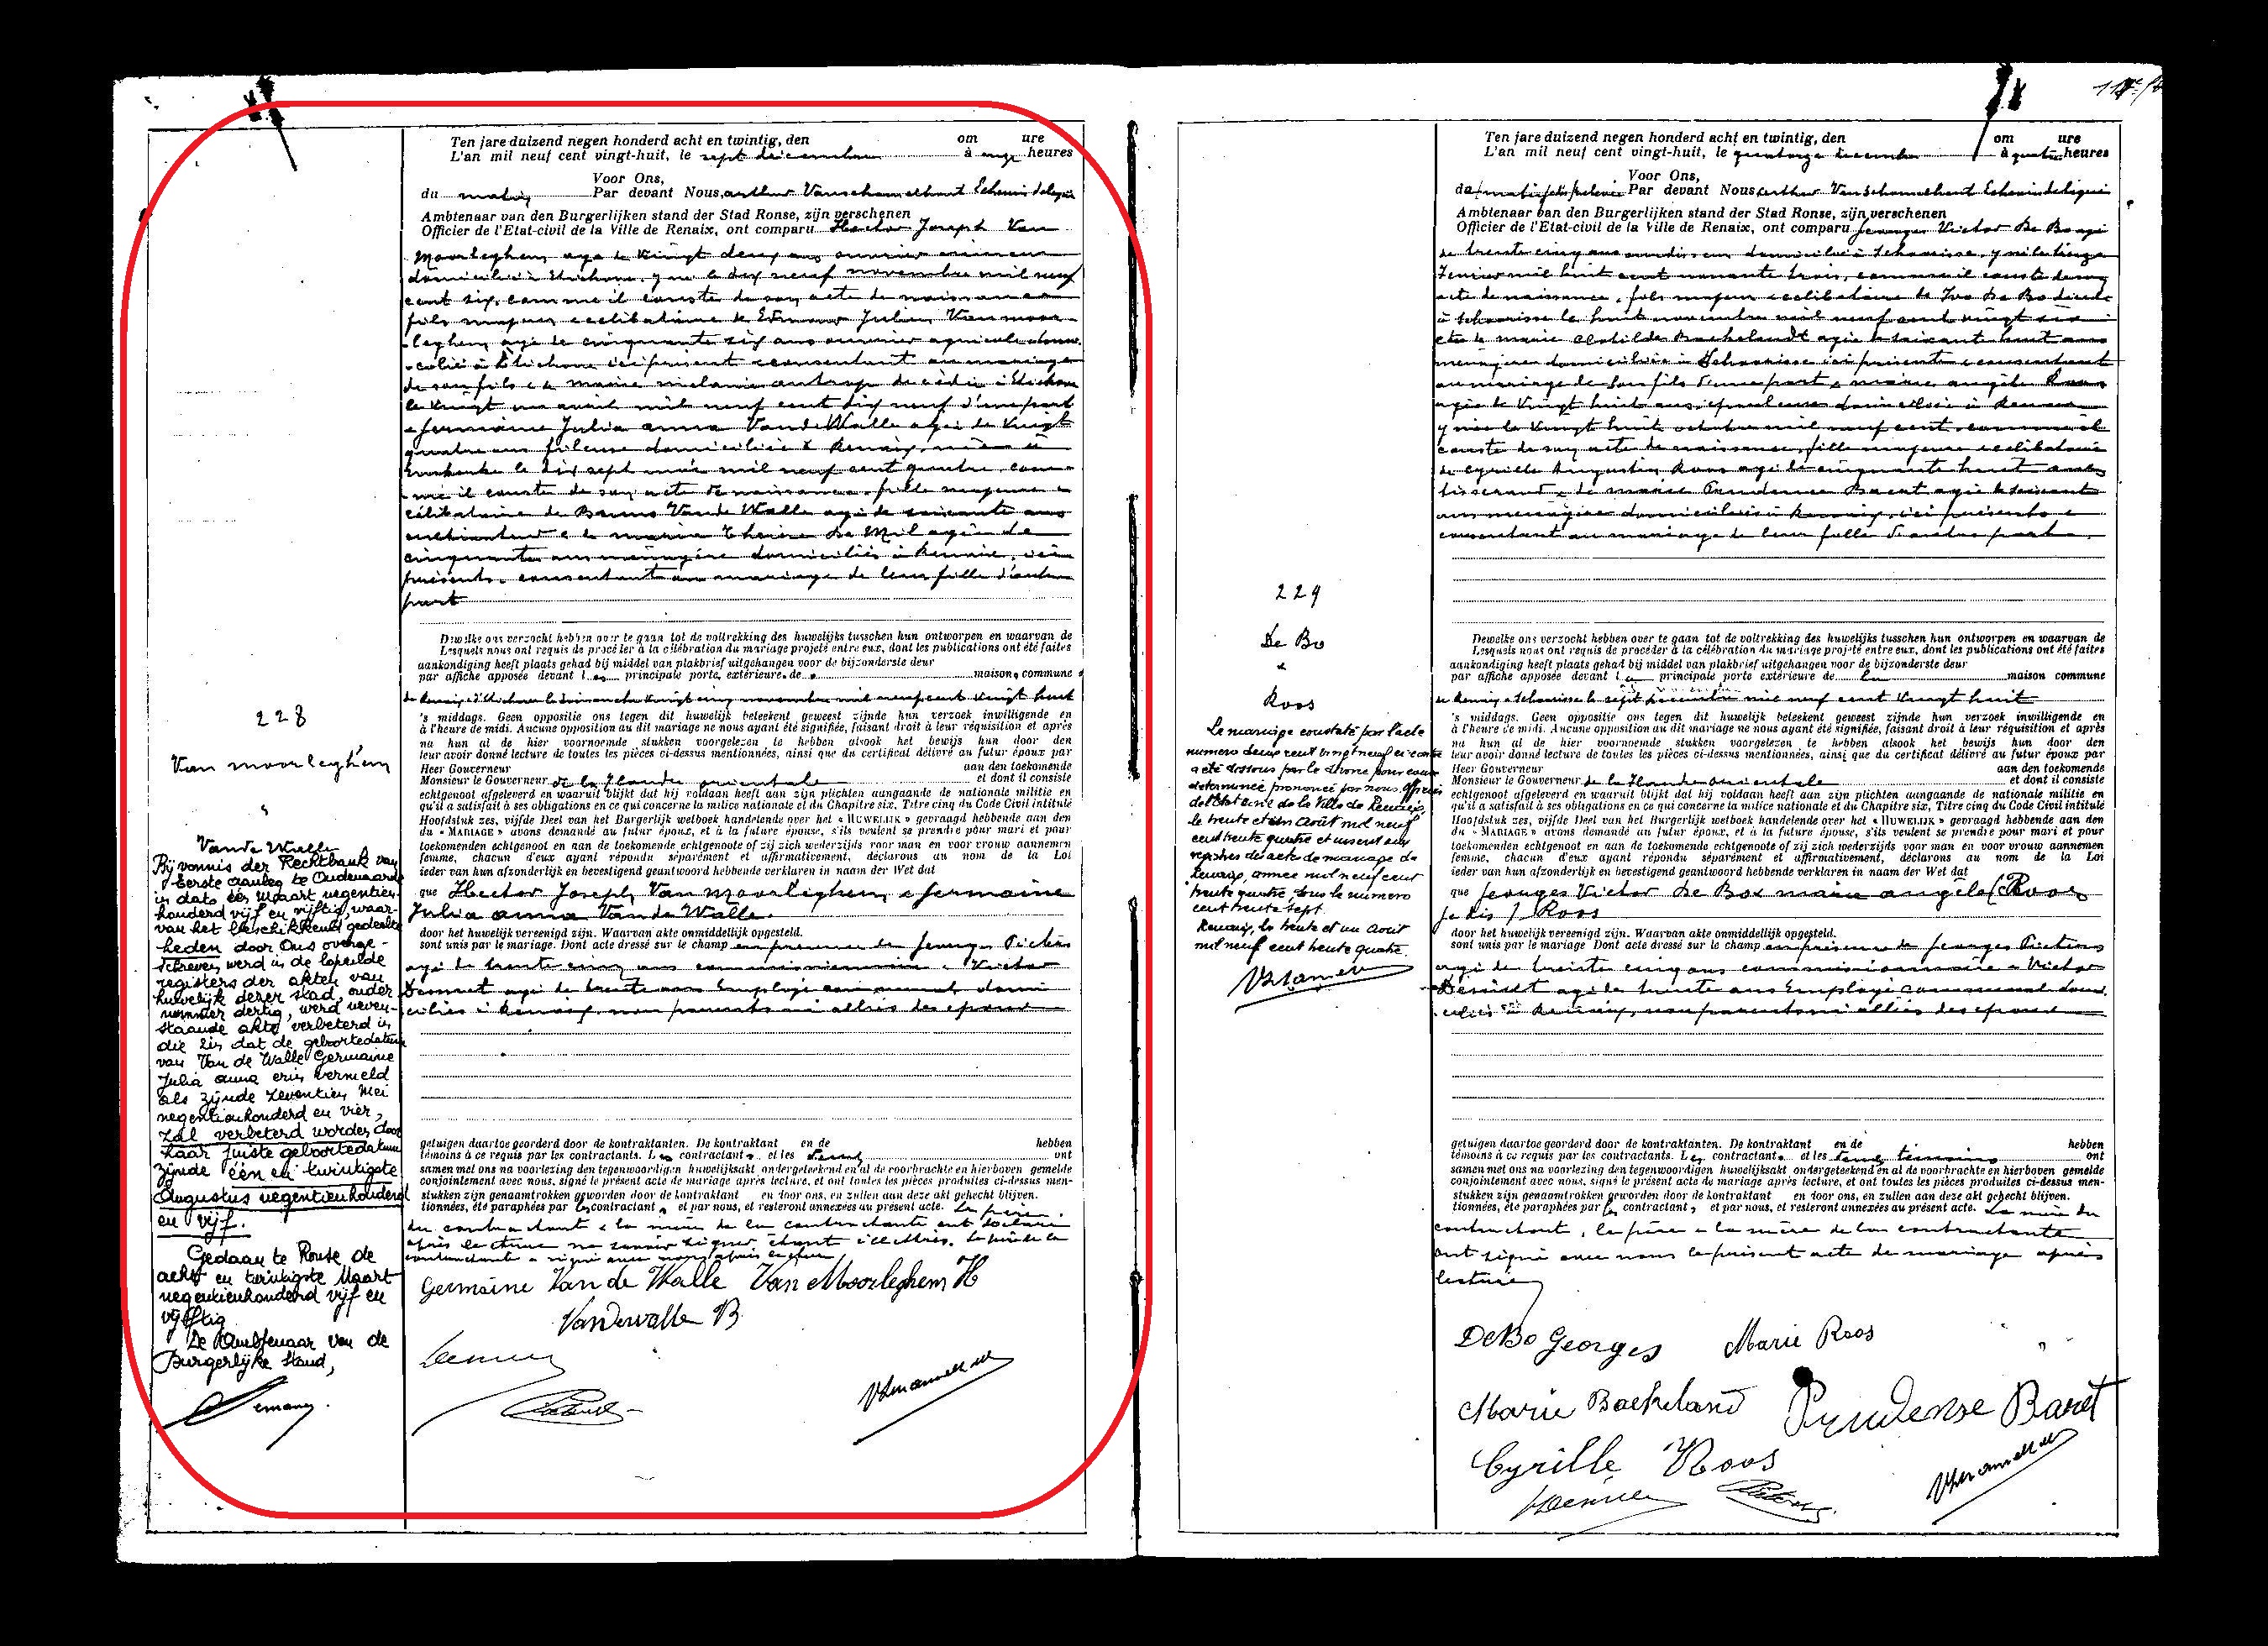 11
Ten jare duizend negen honderd acht en twintig, den om ure
L'an mil neuf cent vingt-huit, le sept décembre à onze heures
Voor Ons,
du matin Par devant Nous, arthur Vanschamelhout Echevin délégué
Ambtenaar van den Burgerlijken stand der Stad Ronse, zijn verschenen
Officier de l'Etat-civil de la Ville de Renaix, ont comparu Hector Joseph Van
Moorleghem age de vingt deux ans ouvrier mineur
domicilié à Etichove, y né le dix neuf novembre mil neuf
cent six, comme il conste de son acte de naissance
fils majeur célibataire de Edmond Julien Van moor-
leghem agé de cinquante six ans ouvrier agricole domi-
-cilié à Etichove ici présent consentant au mariage
de son fils & de marie melanie décédée à Etichove
le vingt un avril mil neuf cent dix neuf d'une part
& Germaine Julia anna Vande Walle agée de vingt
quatre ans fileuse domiciliée à Renaix, née à
le dix sept mai mil neuf cent quatre, com-
-me il conste de son acte de naissance, fille majeure
célibataire de Bruno Vande Walle agé de soixante ans
& de marie Therèse De Mil agée de
cinquante ans ménagère domiciliés à Renaix, ici
présents & consentant au mariage de leur fille d'autre
part
Dewelke ons verzocht hebben over te gaan tot de voltrekking des huwelijks tusschen hun ontworpen en waarvan de
Lesquels nous ont requis de procéder à la célébration du mariage projeté entre eux, dont les publications ont été faites
aankondiging heeft plaats gehad bij middel van plakbrief uitgehangen voor de bijzonderste deur
par affiche apposée devant les principale porte, extérieure, de maison, commune
de Renaix & d'Etichove le dimanche vingt cinq novembre mil neuf cent vingt huit
's middags. Geen oppositie ons tegen dit huwelijk beteekent geweest zijnde hun verzoek inwilligende en
à l'heure de midi. Aucune opposition au dit mariage ne nous ayant été signifiée, faisant droit à leur réquisition et après
na hun al de hier voornoemde stukken voorgelezen te hebben alsook het bewijs hun door den
leur avoir donné lecture de toutes les pièces ci-dessus mentionnées, ainsi que du certificat délivré au futur époux par
Heer Gouverneur aan den toekomende
Monsieur le Gouverneur de la Flandre orientale et dont il consiste
echtgenoot afgeleverd en waaruit blijkt dat hij voldaan heeft aan zijn plichten aangaande de nationale militie en
qu'il a satisfait à ses obligations en ce qui concerne la milice nationale et du Chapitre six, Titre cinq du Code Civil intitulé
Hoofdstuk zes, vijfde Deel van het Burgerlijk wetboek handelende over het « HUWELIJK » gevraagd hebbende aan den
du « MARIAGE » avons demandé au futur époux, et à la future épouse, s'ils veulent se prendre pour mari et pour
toekomenden echtgenoot en aan de toekomende echtgenoote of zij zich wederzijds voor man en voor vrouw aannemen
femme, chacun d'eux ayant répondu séparément et affirmativement, déclarons au nom de la Loi
ieder van hun afzonderlijk en bevestigend geantwoord hebbende verklaren in naam der Wet dat
que Hector Joseph Van moorleghem & Germaine
Julia anna Vande Walle.
door het huwelijk vereenigd zijn. Waarvan akte onmiddellijk opgesteld.
sont unis par le mariage. Dont acte dressé sur le champ en présence de Georges
agé de trente cinq ans commissionnaire & Victor
agé de trente ans Employé communal domi
ciliés à Renaix, non parents ni alliés des époux
getuigen daartoe georderd door de kontraktanten. De kontraktant en de hebben
témoins à ce requis par les contractants. Les contractants et les témoins ont
samen met ons na voorlezing den tegenwoordigen huwelijksakt ondergeteekend en al de voorbrachte en hierboven gemelde
conjointement avec nous, signé le présent acte de mariage après lecture, et ont toutes les pièces produites ci-dessus men-
stukken zijn genaamtrokken geworden door de kontraktant en door ons, en zullen aan deze akt gehecht blijven.
tionnées, été paraphées par les contractants et par nous, et resteront annexées au présent acte. Le père
du contractant & la mère de la contractante ont déclaré
après lecture ne savoir signer étant illettrés. Le père de la
contractante a signé avec nous après lecture
Germaine Van de Walle Van Moorleghem H
Vandewalle B
228
Van moorleghem
&
Vande Walle
Bij vonnis der Rechtbank van
Eerste aanleg te Oudenaarde
in dato één Maart negentien-
honderd vijf en vijftig, waar-
van het beschikkend gedeelte
heden door Ons overge-
schreven werd in de lopende
registers der akten van
huwelijk dezer stad, onder
nummer dertig, werd neven-
staande akte verbeterd in
die zin dat de geboortedatum
van Van de Walle Germaine
Julia anna erin vermeld
als zijnde zeventien Mei
negentienhonderd en vier,
zal verbeterd worden door
haar juiste geboortedatum
zijnde één en twintigste
Augustus negentienhonderd
en vijf.
Gedaan te Ronse de
acht en twintigste Maart
negentienhonderd vijf en
vijftig
De Ambtenaar van de
Burgerlijke stand,
Ten jare duizend negen honderd acht en twintig, den om ure
L'an mil neuf cent vingt-huit, le quatorze décembre à quatre heures
Voor Ons,
Par devant Nous, arthur Vanschamelhout Echevin délégué
Ambtenaar van den Burgerlijken stand der Stad Ronse, zijn verschenen
Officier de l'Etat-civil de la Ville de Renaix, ont comparu Georges Victor De Bo agé
de trente cinq ans domicilié à Schoorisse, y né le
Janvier mil huit cent nonante trois, comme il conste de son
acte de naissance, fils majeur célibataire de Ivo De Bo décédé
à Schoorisse le huit novembre mil neuf cent vingt six
& de marie Clotilde Baekelandt agée de soixante huit ans
ménagère domiciliée à Schoorisse ici présente & consentant
au mariage de son fils d'une part & marie angèle Roos
agée de vingt huit ans, domiciliée à Renaix
y née le vingt huit octobre mil neuf cent, comme il
conste de son acte de naissance, fille majeure célibataire
de Cyrille Augustin Roos agé de cinquante huit ans
tisserand & de marie Prudence Baert agée de soixante
ans ménagère domiciliés à Renaix, ici présents &
consentant au mariage de leur fille d'autre part.
Dewelke ons verzocht hebben over te gaan tot de voltrekking des huwelijks tusschen hun ontworpen en waarvan de
Lesquels nous ont requis de procéder à la célébration du mariage projeté entre eux, dont les publications ont été faites
aankondiging heeft plaats gehad bij middel van plakbrief uitgehangen voor de bijzonderste deur
par affiche apposée devant la principale porte extérieure de la maison commune
de Renaix & Schoorisse le sept décembre mil neuf cent vingt huit
's middags. Geen oppositie ons tegen dit huwelijk beteekent geweest zijnde hun verzoek inwilligende en
à l'heure de midi. Aucune opposition au dit mariage ne nous ayant été signifiée, faisant droit à leur réquisition et après
na hun al de hier voornoemde stukken voorgelezen te hebben alsook het bewijs hun door den
leur avoir donné lecture de toutes les pièces ci-dessus mentionnées, ainsi que du certificat délivré au futur époux par
Heer Gouverneur aan den toekomende
Monsieur le Gouverneur de la Flandre orientale et dont il consiste
echtgenoot afgeleverd en waaruit blijkt dat hij voldaan heeft aan zijn plichten aangaande de nationale militie en
qu'il a satisfait à ses obligations en ce qui concerne la milice nationale et du Chapitre six, Titre cinq du Code Civil intitulé
Hoofdstuk zes, vijfde Deel van het Burgerlijk wetboek handelende over het « HUWELIJK » gevraagd hebbende aan den
du « MARIAGE » avons demandé au futur époux, et à la future épouse, s'ils veulent se prendre pour mari et pour
toekomenden echtgenoot en aan de toekomende echtgenoote of zij zich wederzijds voor man en voor vrouw aannemen
femme, chacun d'eux ayant répondu séparément et affirmativement, déclarons au nom de la Loi
ieder van hun afzonderlijk en bevestigend geantwoord hebbende verklaren in naam der Wet dat
que Georges Victor De Bo & marie angèle Roos
je dis / Roos
door het huwelijk vereenigd zijn. Waarvan akte onmiddellijk opgesteld.
sont unis par le mariage Dont acte dressé sur le champ en présence de Georges
agé de trente cinq ans commissionnaire & Victor
agé de trente ans Employé communal domi
ciliés à Renaix, non parents ni alliés des époux
getuigen daartoe georderd door de kontraktanten. De kontraktant en de hebben
témoins à ce requis par les contractants. Les contractants et les deux témoins ont
samen met ons na voorlezing den tegenwoordigen huwelijksakt ondergeteekend en al de voorbrachte en hierboven gemelde
conjointement avec nous, signé le présent acte de mariage après lecture, et ont toutes les pièces produites ci-dessus men-
stukken zijn genaamtrokken geworden door de kontraktant en door ons, en zullen aan deze akt gehecht blijven.
tionnées, été paraphées par les contractants et par nous, et resteront annexées au présent acte. La mère du
contractant, le père & la mère de la contractante
ont signé avec nous le présent acte de mariage après
lecture
De Bo Georges Marie Roos
Marie Baekeland Prudense Baert
Cyrille Roos
229
De Bo
&
Roos
Le mariage constaté par l'acte
numero deux cent vingt neuf ci-contre
a été dissous par le divorce pour cause
déterminée prononcé par nous, Officier
de l'Etat civil de la Ville de Renaix,
le trente et un Août mil neuf
cent trente quatre et inscrit aux
registres des actes de mariage de
Renaix, année mil neuf cent
trente quatre, sous le numero
cent trente sept.
Renaix, le trente et un Août
mil neuf cent trente quatre.